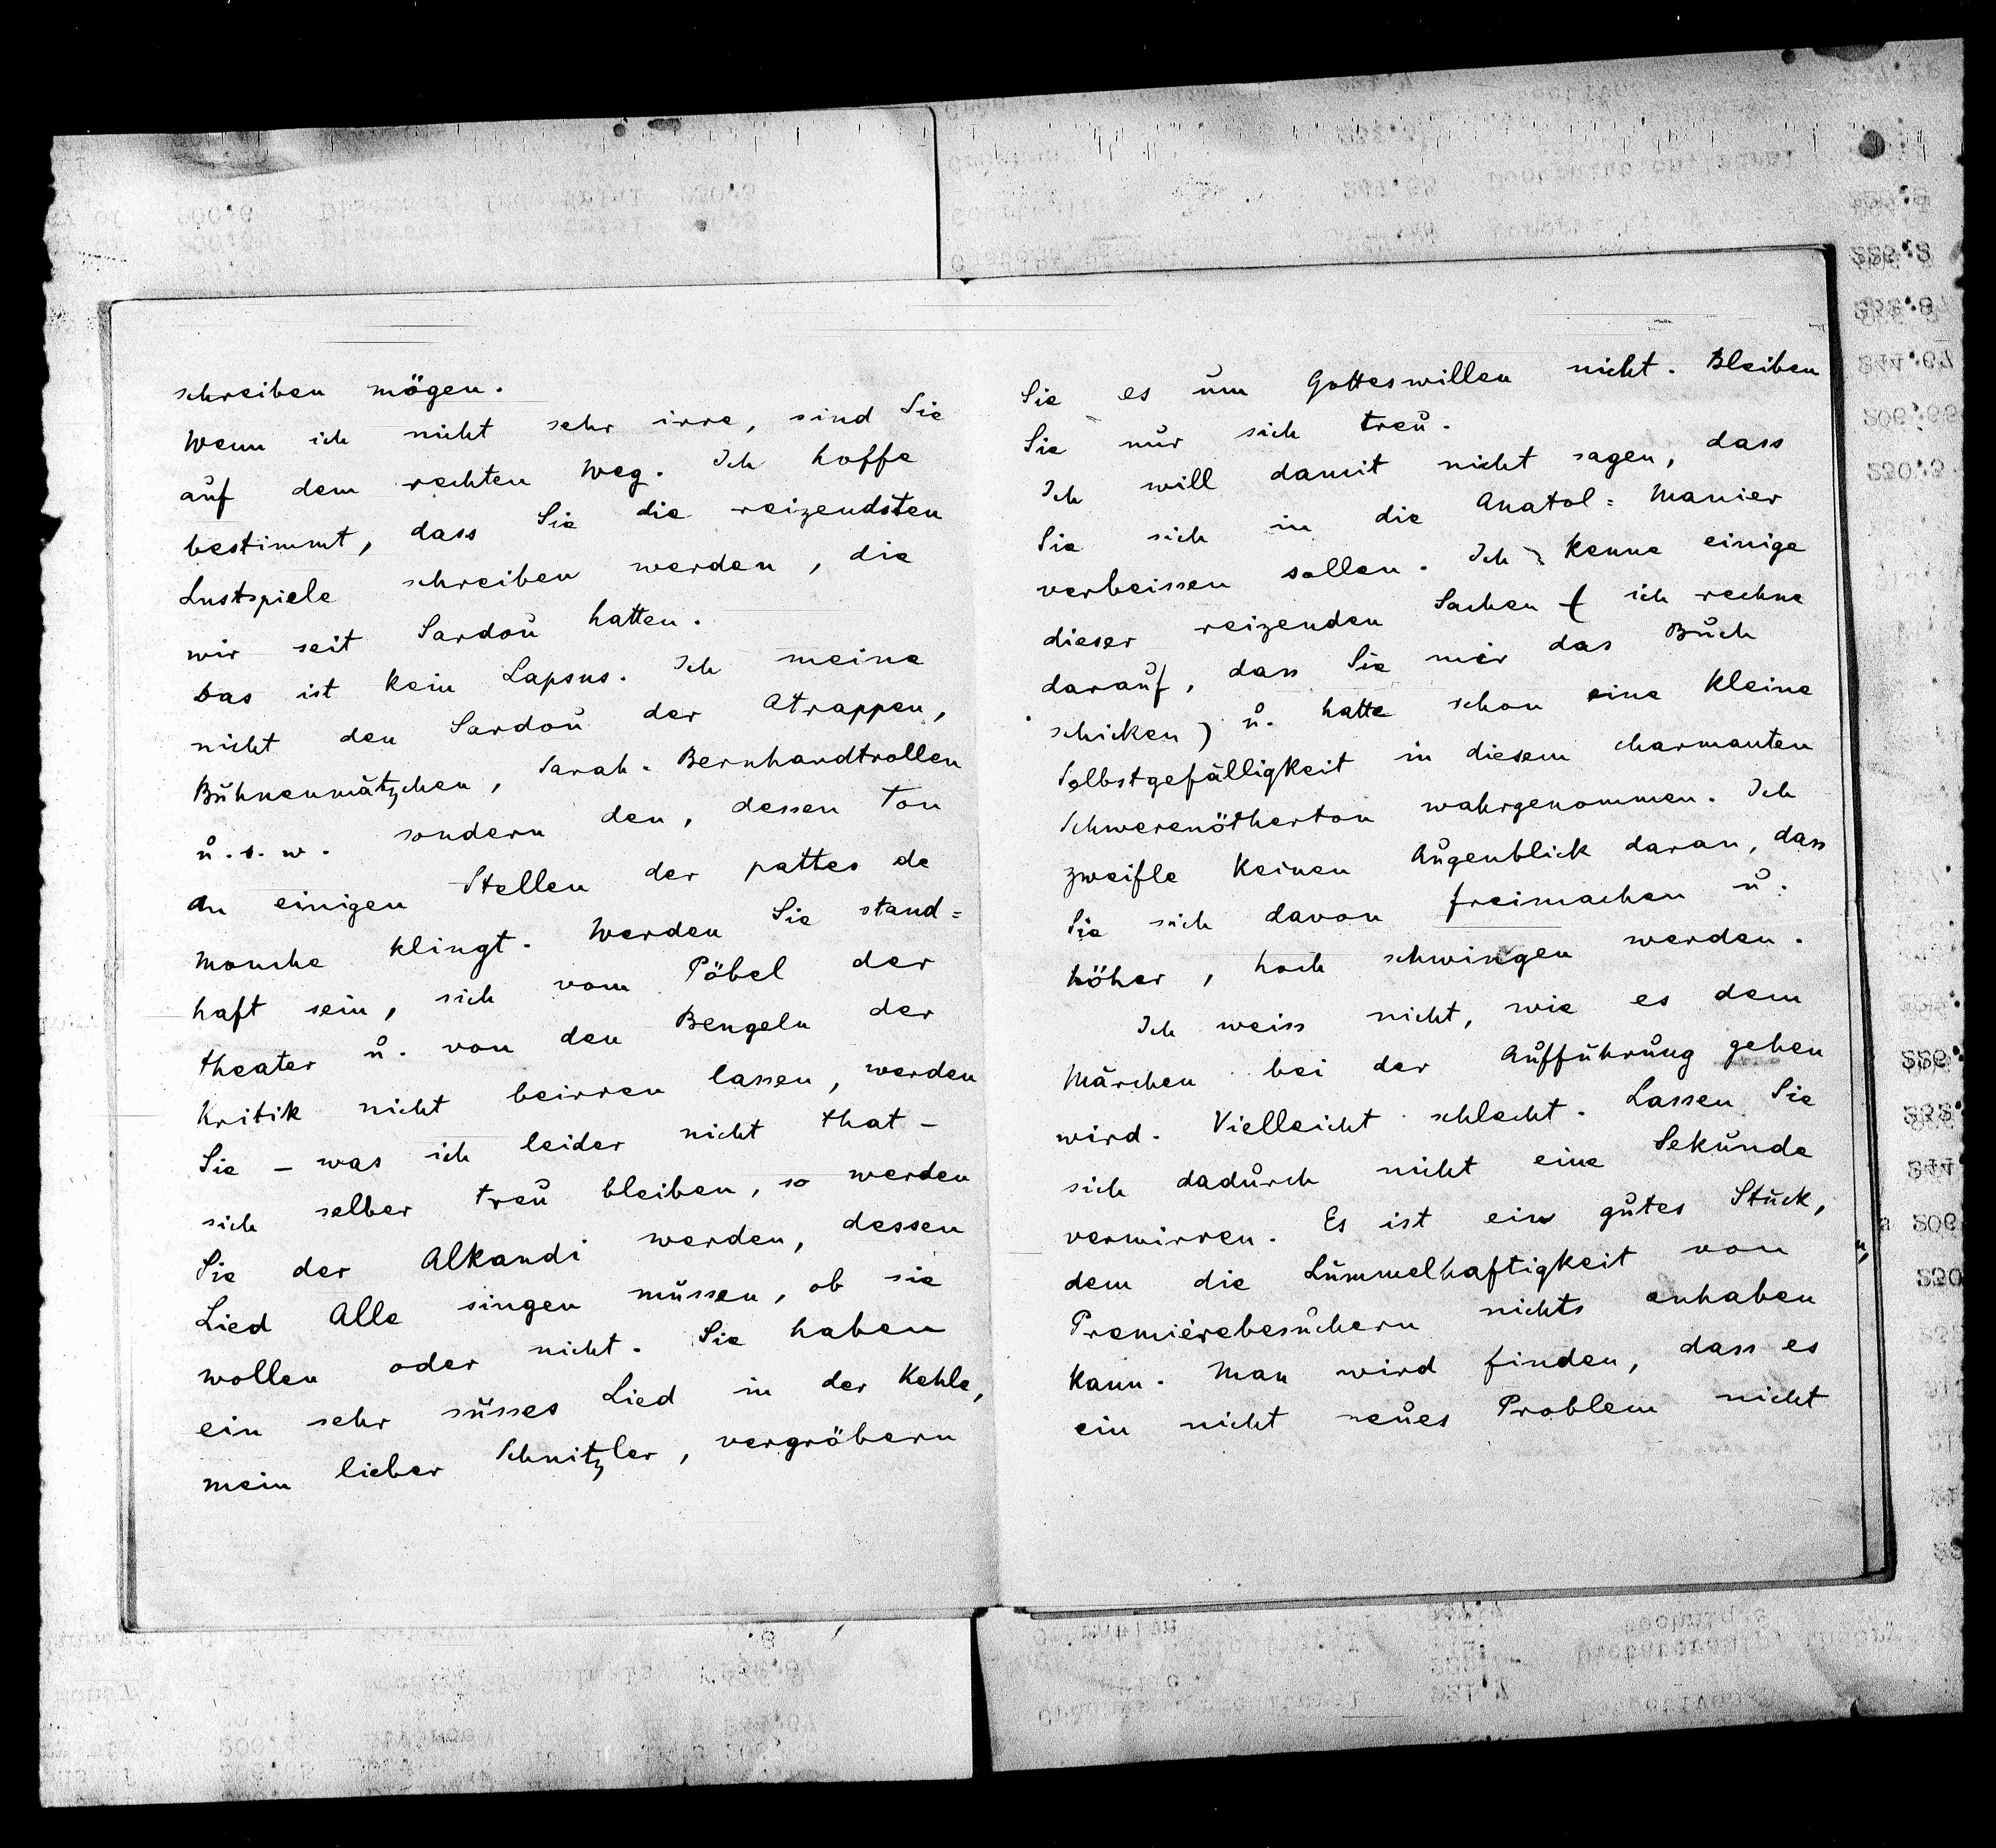 schreiben mögen.
Wenn ich nicht sehr irre, sind Sie
auf dem rechten Weg. Ich hoffe
bestimmt, dass Sie die reizendsten
Lustspiele schreiben werden, die
wir seit Sardou hatten.
Das ist kein Lapsus. Ich meine
nicht den Sardou der Atrappen,
Bühnenmätzchen, Sarah-Bernhardtrollen
u.s.w. sondern den, dessen Ton
an einigen Stellen der pattes de
mouche klingt. Werden Sie stand=
haft sein, sich vom Pöbel der
theater u. von den Bengeln der
Kritik nicht beirren lassen, werden
Sie – was ich leider nicht that –
sich selber treu bleiben, so werden
Sie der Alkandi werden, dessen
Lied Alle singen müssen, ob sie
wollen oder nicht. Sie haben
ein sehr süsses Lied in der Kehle,
mein lieber Schnitzler, vergröbern
Sie es um Gotteswillen nicht. Bleiben
Sie nur sich treu.
Ich will damit nicht sagen, dass
Sie sich in die Anatol=Manier
verbeissen sollen. Ich kenne einige
dieser reizenden Sachen ( ich rechne
darauf, dass Sie mir das Buch
schicken ) u. hatte schon eine kleine
Selbstgefälligkeit in diesem charmanten
Schwerenötherton wahrgenommen. Ich
zweifle keinen Augenblick daran, dass
Sie sich davon freimachen u.
höher, hoch schwingen werden.
Ich weiss nicht, wie es dem
Märchen bei der Aufführung gehen
wird. Vielleicht schlecht. Lassen Sie
sich dadurch nicht eine Sekunde
verwirren. Es ist ein gutes Stück,
dem die Lümmelhaftigkeit von
Premièrebesuchern nichts anhaben
kann. Man wird finden, dass es
ein nicht neues Problem nicht